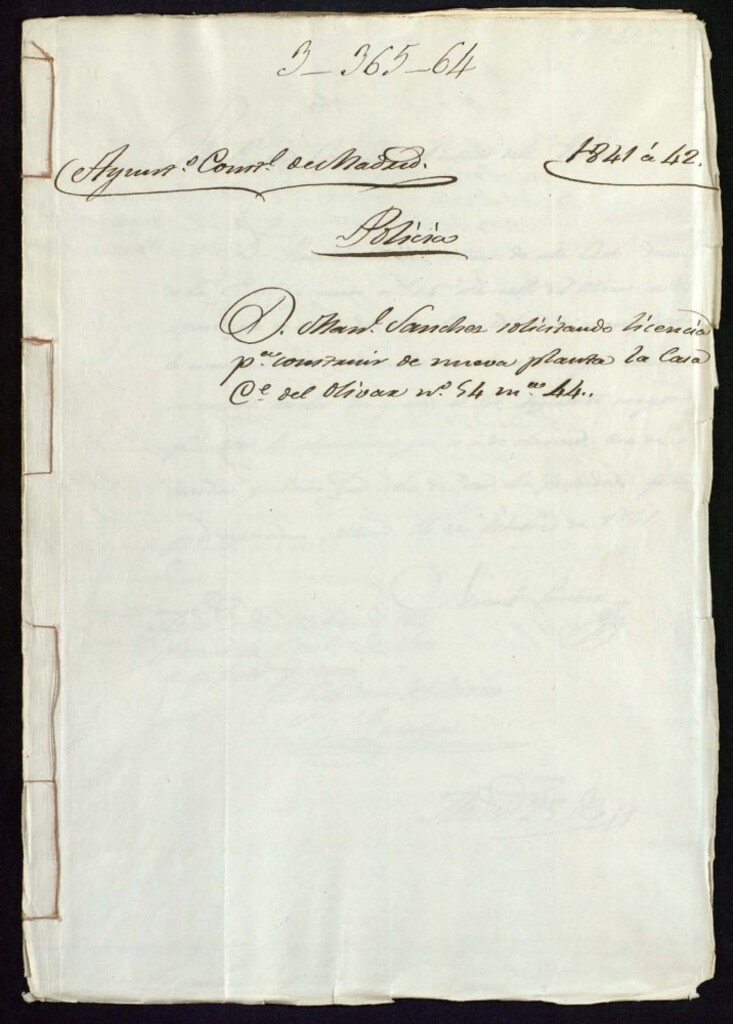 3-365-64
Ayunt.º Const.l de Madrid.
1841 á 42.
Policia
D. Man.l Sanchez solicitando licencia
p.ª construir de nueva planta la Casa
C.e del Olivar n.º 54 m.na 44..